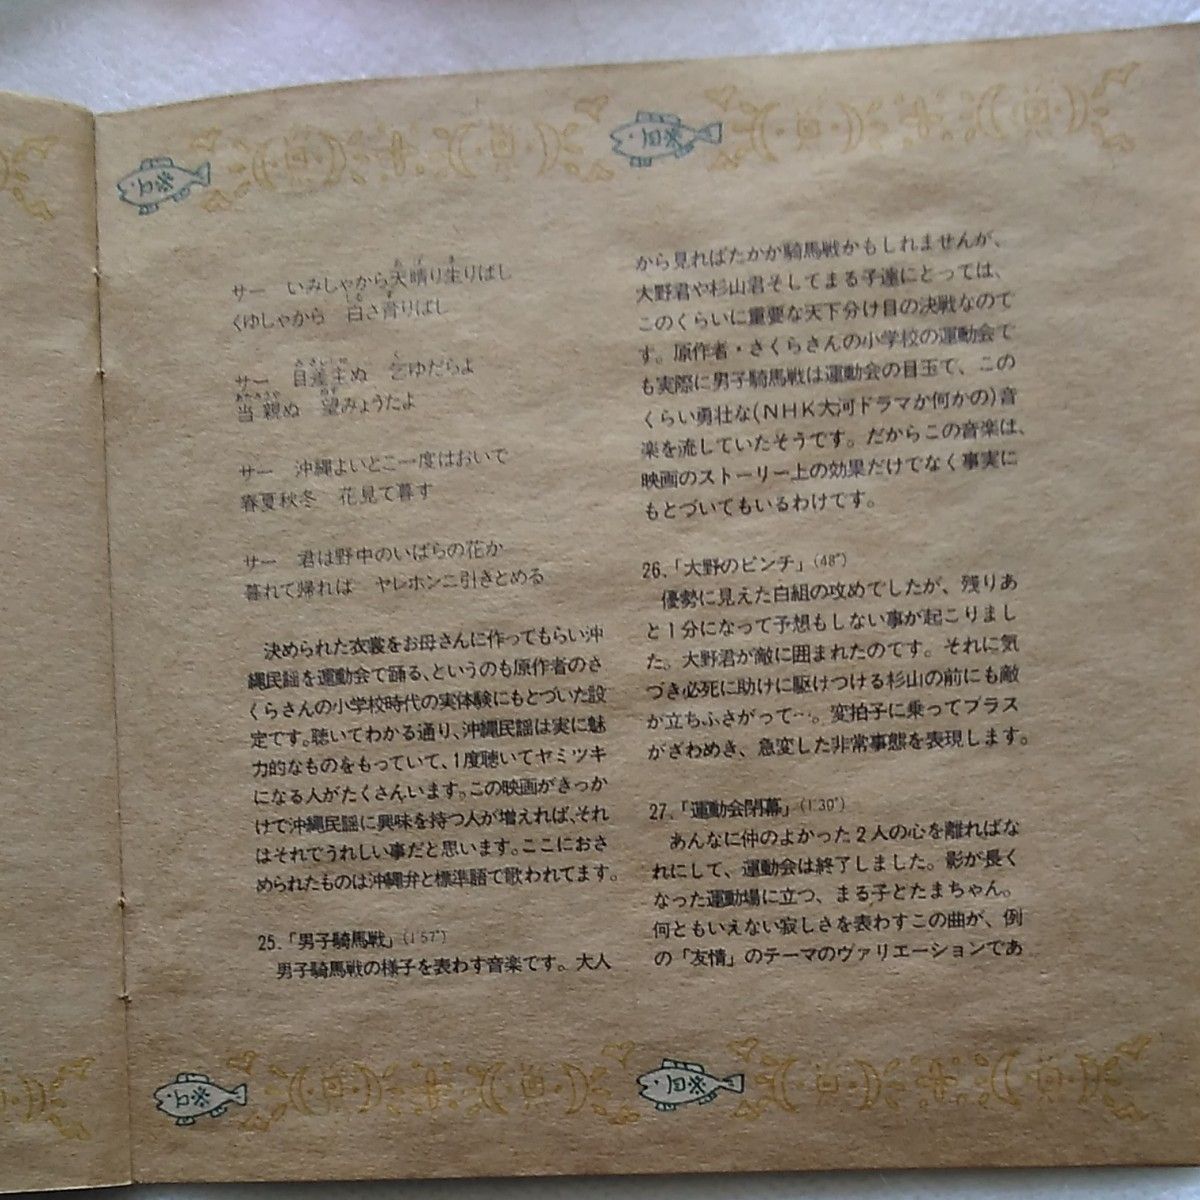 サー いみしゃから天晴り生りばし
くゆしゃから 白さ青りばし
サー 目達主ぬ 乞ゆだらよ
当親ぬ 望みょうたよ
サー 沖縄よいとこ一度はおいで
春夏秋冬 花見て暮す
サー 君は野中のいばらの花か
暮れて帰れば ヤレホンニ引きとめる
決められた衣裳をお母さんに作ってもらい沖
縄民謡を運動会で踊る、というのも原作者のさ
くらさんの小学校時代の実体験にもとづいた設
定です。聴いてわかる通り、沖縄民謡は実に魅
力的なものをもっていて、1度聴いてヤミツキ
になる人がたくさんいます。この映画がきっか
けで沖縄民謡に興味を持つ人が増えれば、それ
はそれでうれしい事だと思います。ここにおさ
められたものは沖縄弁と標準語で歌われてます。
25.「男子騎馬戦」(1'57")
男子騎馬戦の様子を表わす音楽です。大人
から見ればたかが騎馬戦かもしれませんが、
大野君や杉山君そしてまる子達にとっては、
このくらいに重要な天下分け目の決戦なので
す。原作者・さくらさんの小学校の運動会で
も実際に男子騎馬戦は運動会の目玉で、この
くらい勇壮な(NHK大河ドラマか何かの)音
楽を流していたそうです。だからこの音楽は、
映画のストーリー上の効果だけでなく事実に
もとづいてもいるわけです。
26.「大野のピンチ」(48")
優勢に見えた白組の攻めでしたが、残りあ
と1分になって予想もしない事が起こりまし
た。大野君が敵に囲まれたのです。それに気
づき必死に助けに駆けつける杉山の前にも敵
が立ちふさがって…。変拍子に乗ってブラス
がざわめき、急変した非常事態を表現します。
27.「運動会閉幕」(1'30")
あんなに仲のよかった2人の心を離ればな
れにして、運動会は終了しました。影が長く
なった運動場に立つ、まる子とたまちゃん。
何ともいえない寂しさを表わすこの曲が、例
の「友情」のテーマのヴァリエーションであ